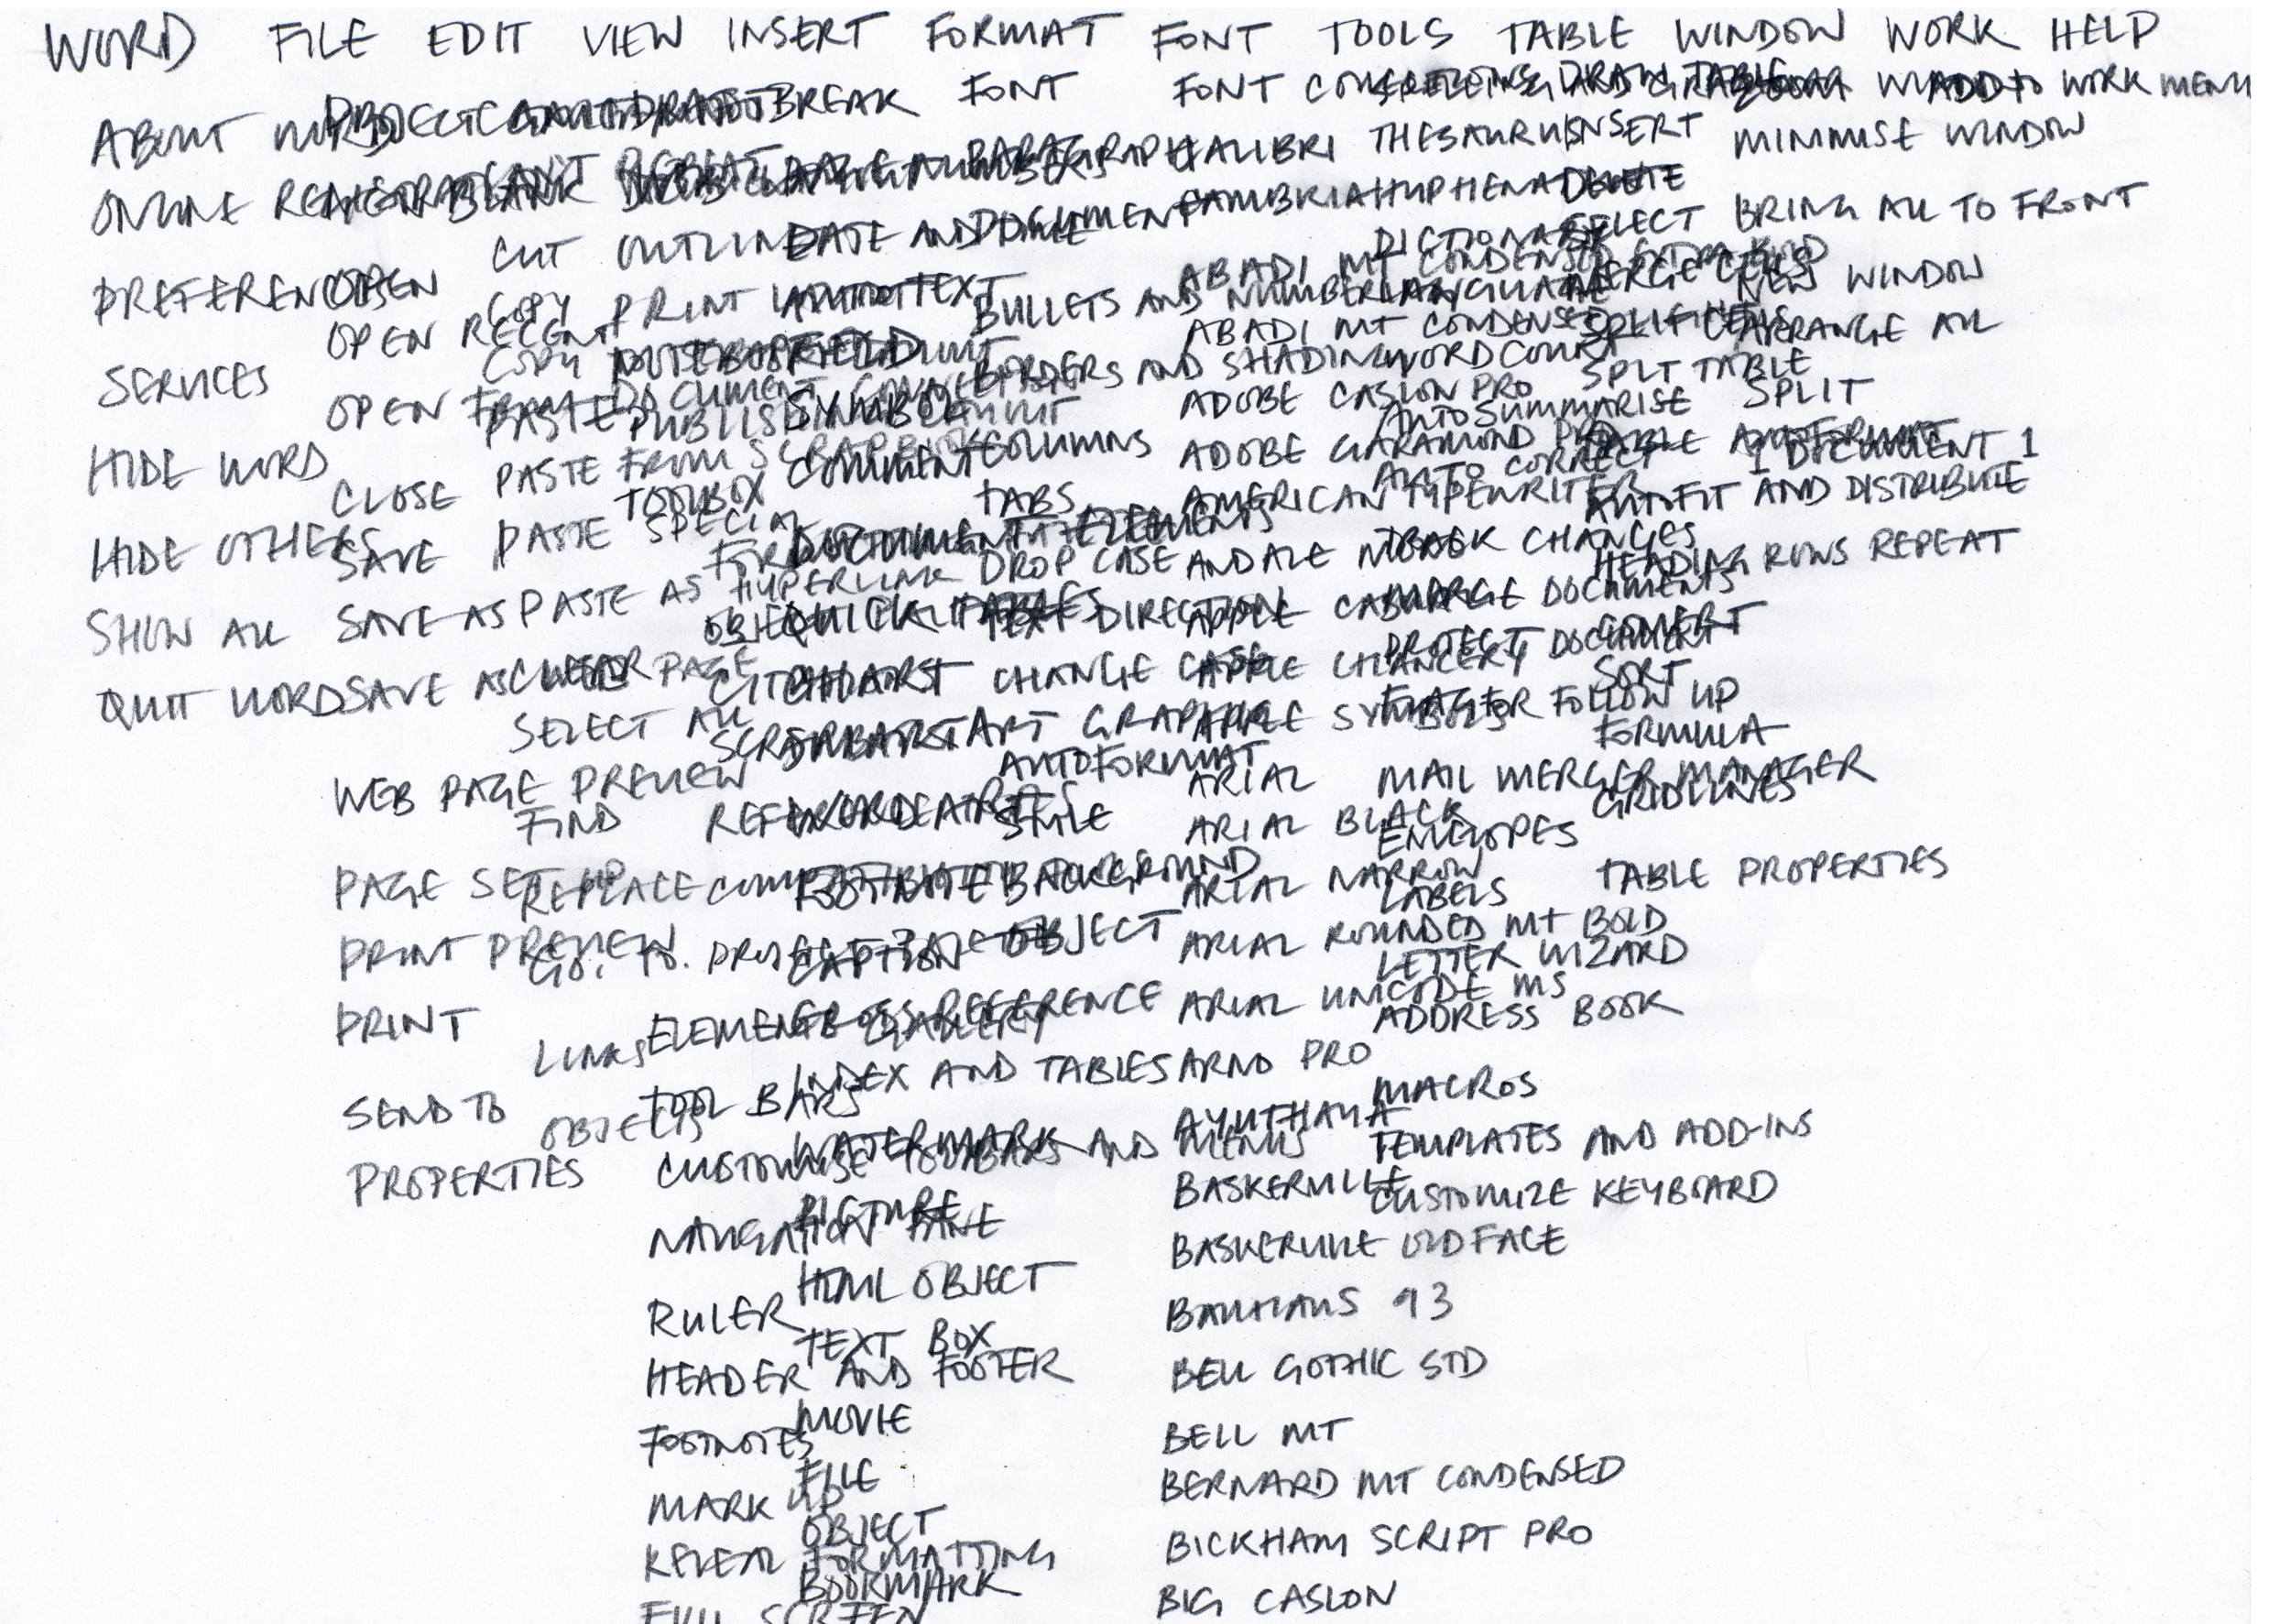 WORD FILE EDIT VIEW INSERT FORMAT FONT TOOLS TABLE WINDOW WORK HELP
ABOUT WORD
ONLINE REGISTRATION
PREFERENCES
SERVICES
HIDE WORD
HIDE OTHERS
SHOW ALL
QUIT WORD
PROJECT GALLERY
NEW BLANK
OPEN
OPEN RECENT
OPEN FROM
CLOSE
SAVE
SAVE AS
SAVE AS WEB PAGE
WEB PAGE PREVIEW
PAGE SET UP
PRINT PREVIEW
PRINT
SEND TO
PROPERTIES
CAN'T REPEAT
CUT
COPY
COPY
PASTE
PASTE FROM SCRAPBOOK
PASTE SPECIAL
PASTE AS HYPERLINK
CLEAR
SELECT ALL
FIND
REPLACE
GO TO.
LINKS
OBJECTS
DRAFT
OUTLINE
PRINT LAYOUT
NOTEBOOK LAYOUT
PUBLISHING LAYOUT
TOOLBOX
ELEMENTS GALLERY
TOOL BARS
CUSTOMISE TOOLBARS AND MENUS
NAVIGATION PANE
RULER
HEADER AND FOOTER
FOOTNOTES
MARK UP
REVEAL FORMATTING
FULL SCREEN
BREAK
PAGE NUMBERS
DATE AND TIME
AUTOTEXT
FIELD
SYMBOL
COMMENT
DOCUMENT ELEMENTS
QUICK TABLES
CHART
SMART ART GRAPHIC
WORD ART
FOOTNOTE
CAPTION
CROSS REFERENCE
INDEX AND TABLES
WATERMARK
PICTURE
HTML OBJECT
TEXT BOX
MOVIE
FILE
OBJECT
BOOKMARK
FONT
PARAGRAPH
DOCUMENT
BULLETS AND NUMBERING
BORDERS AND SHADING
COLUMNS
TABS
DROP CASE
TEXT DIRECTION
CHANGE CASE
AUTOFORMAT
STYLE
BACKGROUND
OBJECT
FONT
CALIBRI
CAMBRIA
ABADI MT CONDENSED EXTRA BOLD
ABADI MT CONDENSED LIGHT
ADOBE CASLON PRO
ADOBE GARAMOND PRO
AMERICAN TYPEWRITER
ANDALE MONO
APPLE CASUAL
APPLE CHANCERY
APPLE SYMBOLS
ARIAL
ARIAL BLACK
ARIAL NARROW
ARIAL ROUNDED MT BOLD
ARIAL UNICODE MS
ARNO PRO
AYUTHAYA
BASKERVILLE
BASKERVILLE OLD FACE
BAUHAUS 93
BELL GOTHIC STD
BELL MT
BERNARD MT CONDENSED
BICKHAM SCRIPT PRO
BIG CASLON
SPELLING AND GRAMMAR
THESAURUS
HYPHENATION
DICTIONARY
LANGUAGE
WORD COUNT
AUTO SUMMARISE
AUTO CORRECT
TRACK CHANGES
MERGE DOCUMENTS
PROTECT DOCUMENT
FLAG FOR FOLLOW UP
MAIL MERGER MANAGER
ENVELOPES
LABELS
LETTER WIZARD
ADDRESS BOOK
MACROS
TEMPLATES AND ADD-INS
CUSTOMIZE KEYBOARD
DRAW TABLE
INSERT
DELETE
SELECT
MERGE CELLS
SPLIT CELLS
SPLT TABLE
TABLE AUTOFORMAT
AUTOFIT AND DISTRIBUTE
HEADING ROWS REPEAT
CONVERT
SORT
FORMULA
GRIDLINES
TABLE PROPERTIES
ZOOM WINDOW
MINIMISE WINDOW
BRING ALL TO FRONT
NEW WINDOW
ARRANGE ALL
SPLIT
1 DOCUMENT 1
ADD TO WORK MENU